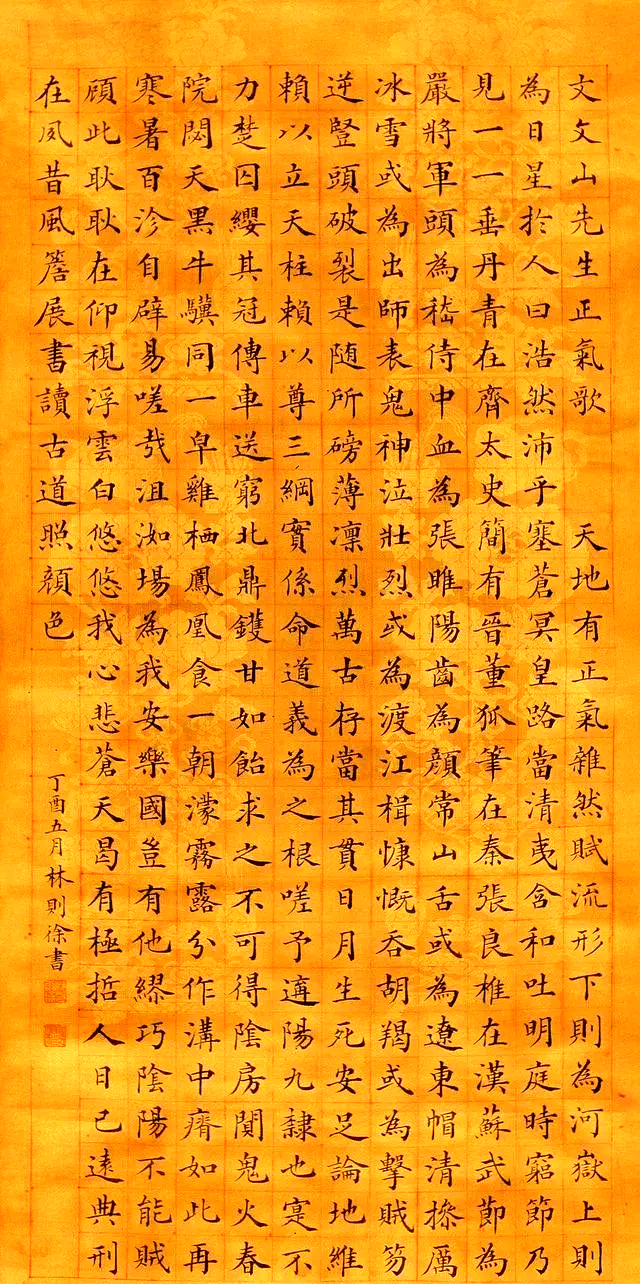 文文山先生正氣歌 天地有正氣雜然賦流形下則為河嶽上則
為日星於人曰浩然沛乎塞蒼冥皇路當清夷含和吐明庭時窮節乃
見一一垂丹青在齊太史簡有晉董狐筆在秦張良椎在漢蘇武節為
嚴將軍頭為嵇侍中血為張睢陽齒為顏常山舌或為遼東帽清操厲
冰雪或為出師表鬼神泣壯烈或為渡江楫慷慨吞胡羯或為擊賊笏
逆豎頭破裂是随所磅薄凜烈萬古存當其貫日月生死安足論地維
賴以立天柱賴以尊三綱實係命道義為之根嗟予遘陽九隸也寔不
力楚囚纓其冠傳車送窮北鼎鑊甘如飴求之不可得陰房闃鬼火春
院閟天黑牛驥同一皁雞栖鳳凰食一朝濛霧露分作溝中瘠如此再
寒暑百沴自辟易嗟哉沮洳場為我安樂國豈有他繆巧陰陽不能賊
頋此耿耿在仰視浮雲白悠悠我心悲蒼天曷有極哲人日已遠典刑
在夙昔風簷展書讀古道照顏色
丁酉五月林則徐書